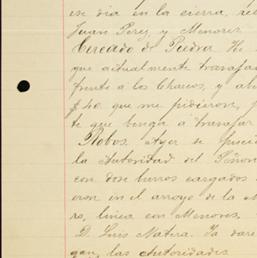 ese dia en la sierra, rec
Juan Perez y Menores
Cercado de Piedra He
que actualmente trabaja
frente a los Chacos, y ab
$40 que me pidieron, p
te que tenga a trabajar
Robos. Ayer se
la Autoridad del Señor
con dos burros cargados
eron en el arroyo de la M
ro, linea con Menores.
D. Luis Matera. Ya dare
gan, las autoridades